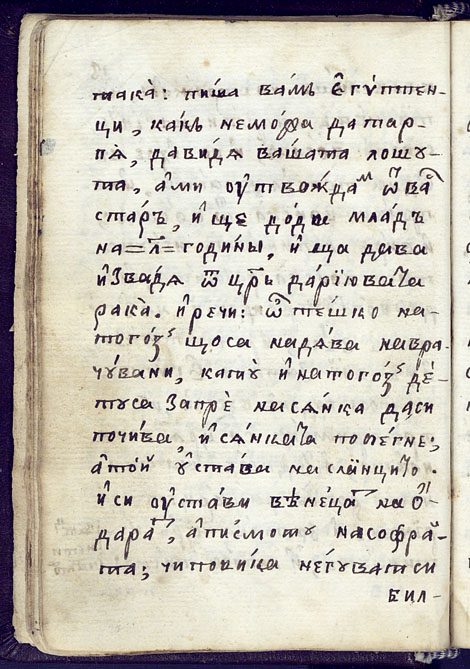 така̀: пиша ва́мъ є҆гѵ́птен-
ци, ка́къ немо́га да тар-
пѧ̀, да ви́дѧ ва́шата лошу-
та, а҆ми ѹ҆твожда́ᵐ ѿ ва́
ста́ръ, и҆ ще до́ди мла́дъ
на=л҃=годи́ны, и҆ ща да ва
и҆зва́дѧ ѿ ца́рь да́рїюва̀та
рака̀. и҆ речи: ѿ те́шко на-
того́зˢ що са надѧ́ва на вра-
чу́вани, като̀ и҆ на того́зˢ де́-
туса запрѐ на сѧ́нка да си
почи́ва, и҆ сѧ́нката поме́гне;
а҆ то́й ѹ҆ста́ва на сла́нцито.
и҆ си ѹ҆ста́ви вѣнеца̀ на о҆-
дара̀, а҆ писмо́ту на софра̀-
та; чи пови́ка не́гувати си
бил-